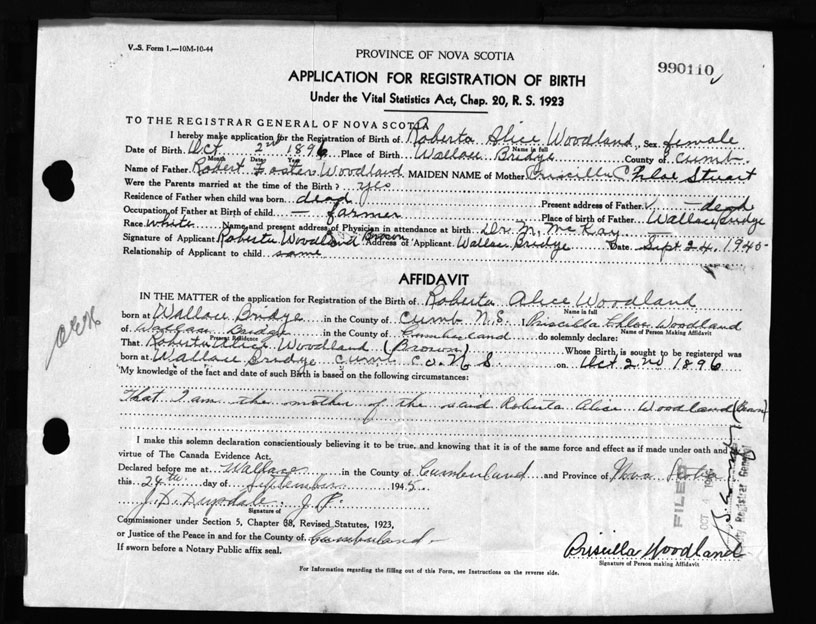 V. S. Form 1.—10M-10-44
PROVINCE OF NOVA SCOTIA
990110
APPLICATION FOR REGISTRATION OF BIRTH
Under the Vital Statistics Act, Chap. 20, R. S. 1923
TO THE REGISTRAR GENERAL OF NOVA SCOTIA
I hereby make application for the Registration of Birth of Roberta Alice Woodland, Sex female
Name in full
Date of Birth Oct 2nd 1896 Place of Birth Wallace Bridge County of Cumb.
Month Date Year
Name of Father Robert Foster Woodland MAIDEN NAME of Mother Priscilla Chloe Stuart
Were the Parents married at the time of the Birth? yes
Residence of Father when child was born dead Present address of Father — dead
Occupation of Father at Birth of child — farmer Place of birth of Father Wallace Bridge
Race white Name and present address of Physician in attendance at birth Dr. M. McKay
Signature of Applicant Roberta Woodland Brown Address of Applicant Wallace Bridge Date Sept 24, 1945
Relationship of Applicant to child same
AFFIDAVIT
IN THE MATTER of the application for Registration of the Birth of Roberta Alice Woodland
Name in full
born at Wallace Bridge in the County of Cumb N.S. I Priscilla Chloe Woodland
Name of Person Making Affidavit
of Wallace Bridge in the County of Cumberland do solemnly declare:
Present Residence
That Roberta Alice Woodland (Brown) Whose Birth is sought to be registered was
born at Wallace Bridge Cumb Co. N. S. on Oct 2nd 1896
My knowledge of the fact and date of such Birth is based on the following circumstances:
That I am the mother of the said Roberta Alice Woodland
I make this solemn declaration conscientiously believing it to be true, and knowing that it is of the same force and effect as if made under oath and
virtue of The Canada Evidence Act.
Declared before me at Wallace in the County of Cumberland and Province of Nova Scotia
this 24th day of September 1945.
J. P.
Signature of
Commissioner under Section 5, Chapter 38, Revised Statutes, 1923,
or Justice of the Peace in and for the County of Cumberland
If sworn before a Notary Public affix seal.
Priscilla Woodland
Signature of Person making Affidavit
For Information regarding the filling out of this Form, see Instructions on the reverse side.
FILED
OCT
Registrar General